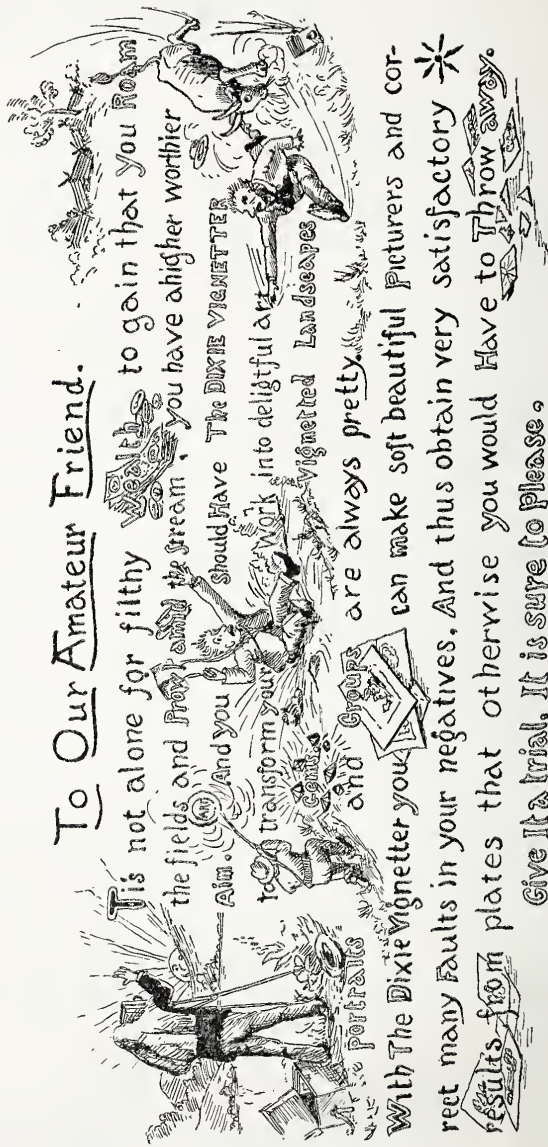 To Our Amateur Friend.
Tis not alone for filthy Wealth to gain that you Roam
the fields and Prowl amid the stream, you have ahigher worthier
Aim. ART And you Should Have The DIXIE VIGNETTER
to transform your Work into deligtful art.
Gems
Vignetted Landscapes
Portraits and Groups are always pretty.
With The Dixie Vignetter you can make soft beautiful picturers and cor-
rect many Faults in your negatives. And thus obtain very satisfactory
results from plates that otherwise you would Have to Throw away.
Give It a trial. It is sure to Please.